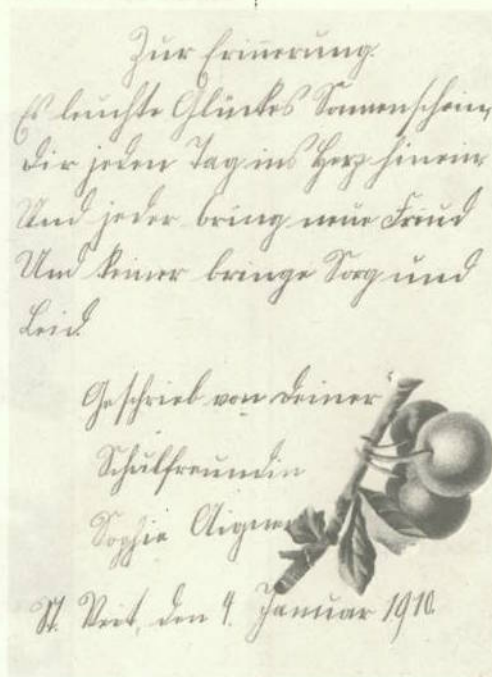 Zur Erinnerung.
Es leuchte Glückes Sonnenschein,
Dir jeden Tag ins Herz hinein
Und jeder bring neue Freud
Und keiner bringe Sorg und
Leid.
Geschrieb von Deiner
Schulfreundin
Sophie Aigner
St. Veit, den 4. Januar 1910.